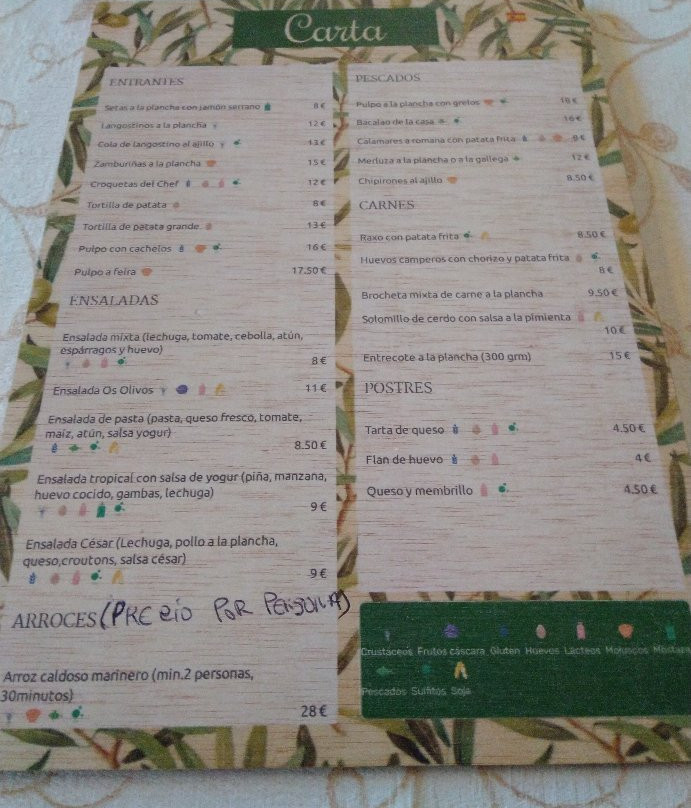 Carta
ENTRANTES
Setas a la plancha con jamón serrano 8 €
Langostinos a la plancha 12 €
Cola de langostino al ajillo 13 €
Zamburiñas a la plancha 15 €
Croquetas del Chef 12 €
Tortilla de patata 8 €
Tortilla de patata grande 13 €
Pulpo con cachelos 16 €
Pulpo a feira 17.50 €
ENSALADAS
Ensalada mixta (lechuga, tomate, cebolla, atún,
espárragos y huevo)
8 €
Ensalada Os Olivos 11 €
Ensalada de pasta (pasta, queso fresco, tomate,
maiz, atún, salsa yogur)
8.50 €
Ensalada tropical con salsa de yogur (piña, manzana,
huevo cocido, gambas, lechuga)
9 €
Ensalada César (Lechuga, pollo a la plancha,
queso,croutons, salsa césar)
9 €
ARROCES (PRECIO POR PERSONA)
Arroz caldoso marinero (min.2 personas,
30minutos)
28 €
PESCADOS
Pulpo a la plancha con grelos
Bacalao de la casa 16 €
Calamares a romana con patata frita 9 €
Merluza a la plancha o a la gallega 12 €
Chipirones al ajillo 8.50 €
CARNES
Raxo con patata frita 8.50 €
Huevos camperos con chorizo y patata frita
8 €
Brocheta mixta de carne a la plancha 9.50 €
Solomillo de cerdo con salsa a la pimienta
10 €
Entrecote a la plancha (300 grm) 15 €
POSTRES
Tarta de queso 4.50 €
Flan de huevo 4 €
Queso y membrillo 4.50 €
Crustáceos Frutos cáscara Gluten Huevos Lácteos Moluscos Mostaza
Pescados Sulfitos Soja